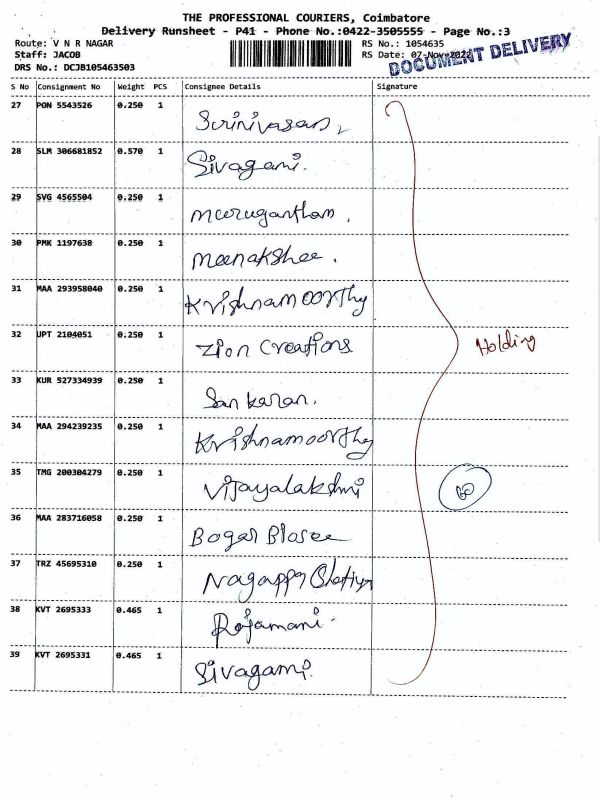 THE PROFESSIONAL COURIERS, Coimbatore
Delivery Runsheet - P41 - Phone No.:0422-3505555 - Page No.:3
Route: V N R NAGAR RS No.: 1054635
Staff: JACOB RS Date: 07-Nov-2022
DRS No.: DCJB105463503
DOCUMENT DELIVERY
S No Consignment No Weight PCS Consignee Details Signature
27 PON 5543526 0.250 1 Srinivasan
28 SLM 306681852 0.570 1 Sivagami.
29 SVG 4565504 0.250 1 Murugantham.
30 PMK 1197638 0.250 1 Meenakshee.
31 MAA 293958040 0.250 1 Krishnamoorthy
32 UPT 2104051 0.250 1 Zion Creations
Holding
33 KUR 527334939 0.250 1 Sankaran.
34 MAA 294239235 0.250 1 Krishnamoorthy
35 TMG 200304279 0.250 1 Vijayalakshmi
36 MAA 283716058 0.250 1 Bogar
37 TRZ 45695310 0.250 1 Nagappa
38 KVT 2695333 0.465 1 Rajamani
39 KVT 2695331 0.465 1 Sivagami.